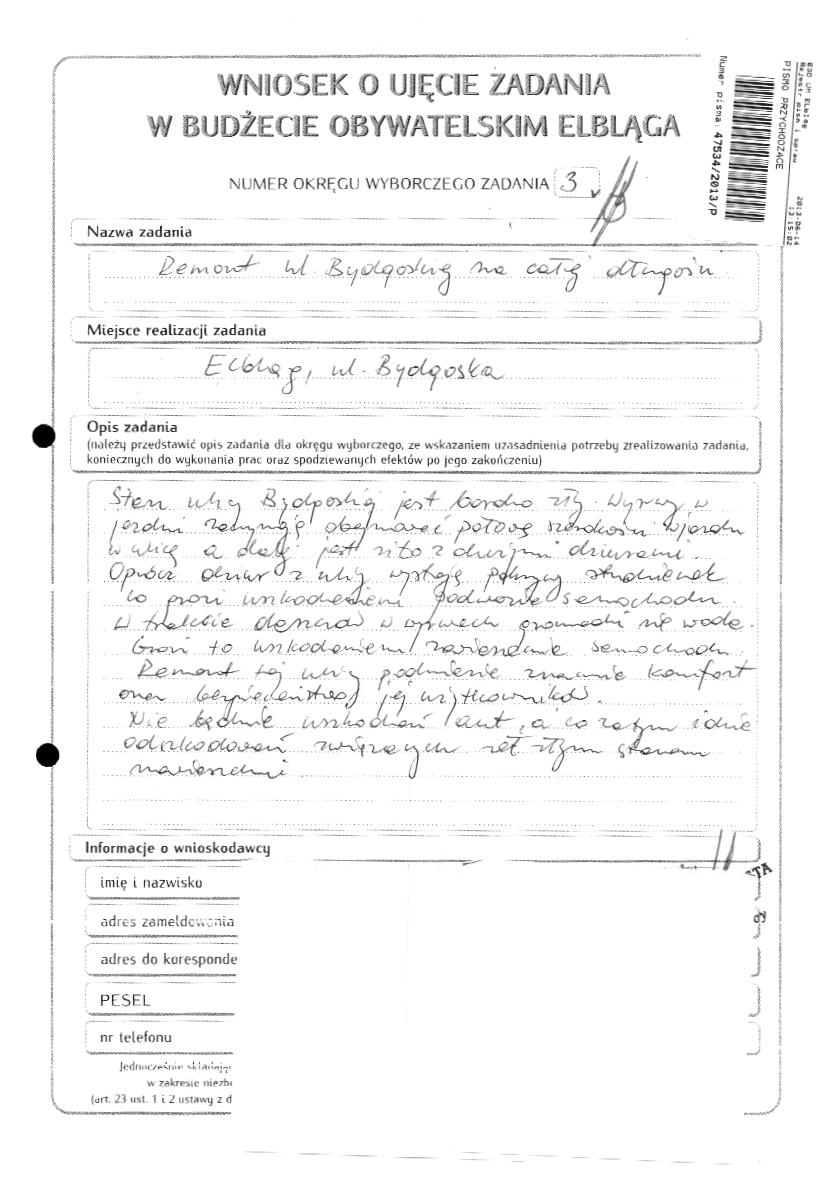 WNIOSEK O UJĘCIE ZADANIA
W BUDŻECIE OBYWATELSKIM ELBLĄGA
NUMER OKRĘGU WYBORCZEGO ZADANIA 3
EOD UM Elbląg
Rejestr pism i spraw
2013-06-14
13:15:02
PISMO PRZYCHODZĄCE
Numer pisma: 47534/2013/P
Nazwa zadania
Remont ul. Bydgoskiej na całej długości
Miejsce realizacji zadania
Elbląg, ul. Bydgoska
Opis zadania
(należy przedstawić opis zadania dla okręgu wyborczego, ze wskazaniem uzasadnienia potrzeby zrealizowania zadania,
koniecznych do wykonania prac oraz spodziewanych efektów po jego zakończeniu)
Stan ulicy Bydgoskiej jest bardzo zły. Wyrwy w
jezdni zaczynają obejmować połowę szerokości wjazdu
w ulicę a dalej jest sito z dużymi dziurami.
Oprócz dziur z ulicy wystają pokrywy studzienek
co grozi uszkodzeniem podwozia samochodu.
W trakcie deszczów w wyrwach gromadzi się woda.
Grozi to uszkodzeniem zawieszenia samochodu.
Remont tej ulicy podniesie znacznie komfort
oraz bezpieczeństwo jej użytkowników.
Nie będzie uszkodzeń aut, a co za tym idzie
odszkodowań związanych ze złym stanem
nawierzchni
Informacje o wnioskodawcy
imię i nazwisko
adres zameldowania
adres do koresponde
PESEL
nr telefonu
Jednocześnie składając
w zakresie niezbę
(art. 23 ust. 1 i 2 ustawy z d